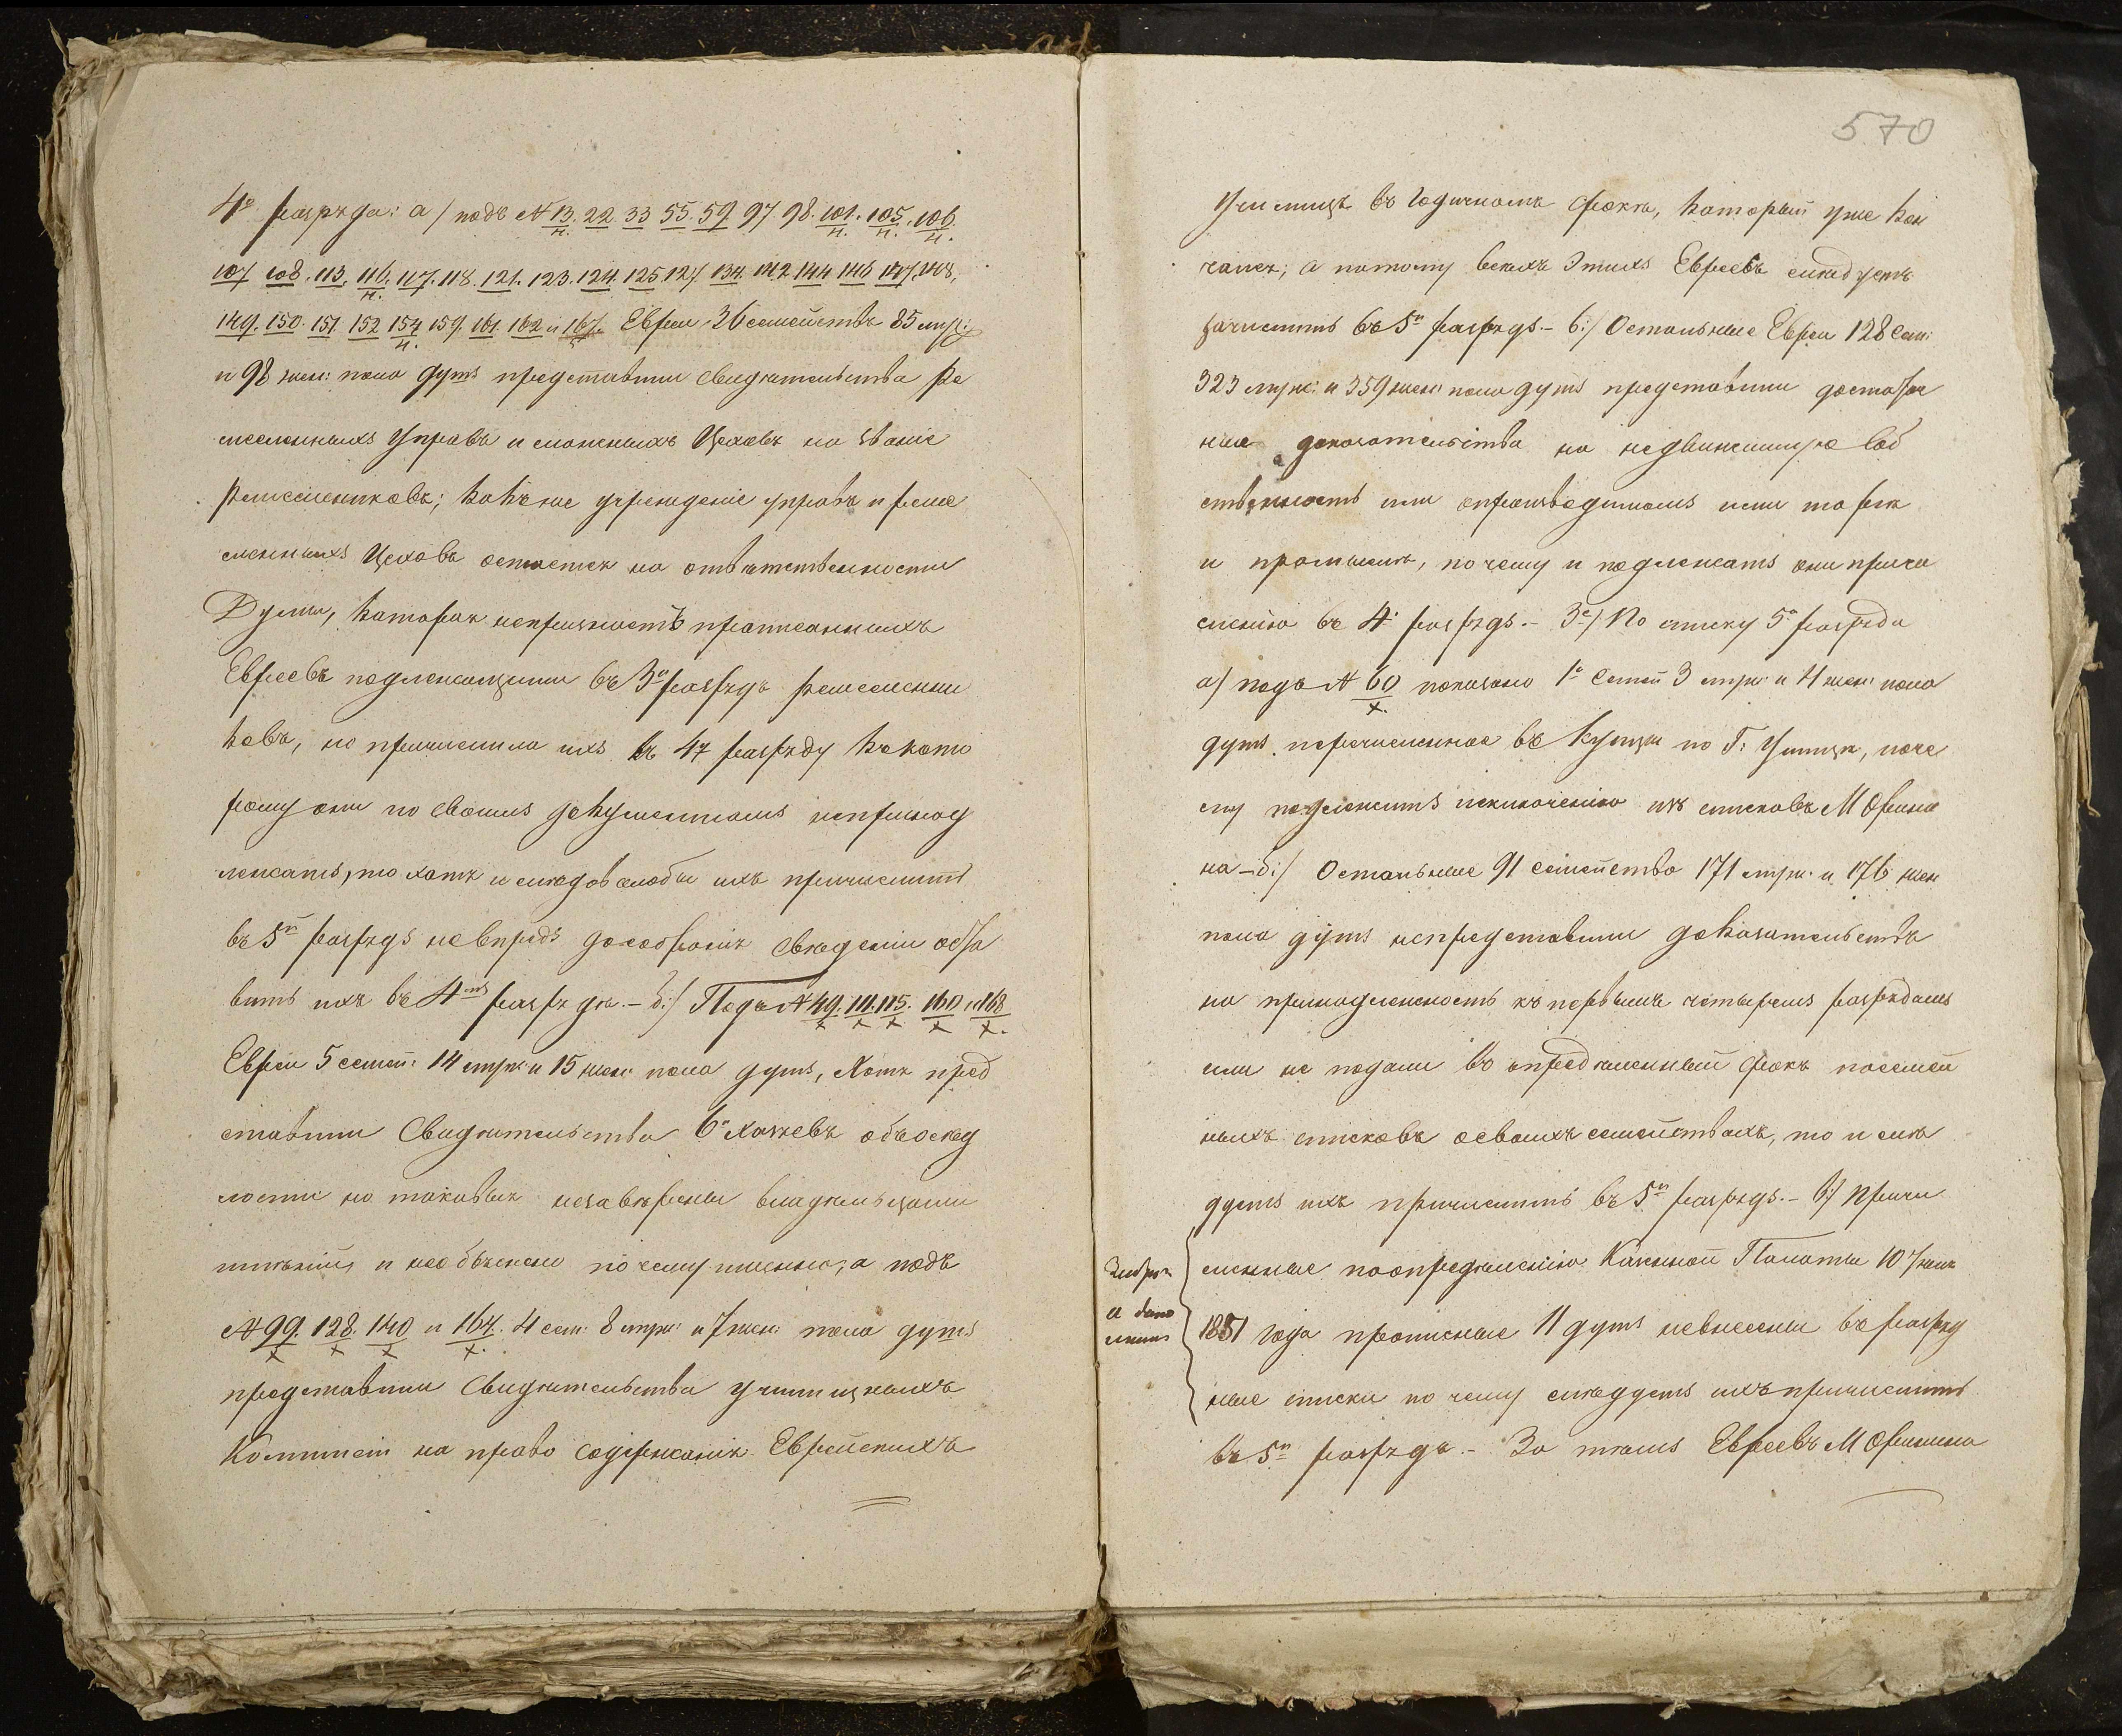 570
4го разряда: а/ подъ № 13. 22. 33 55. 59. 97. 98. 101. 105. 106.
107 108. 113. 116. 117. 118. 121. 123. 124. 125. 127. 134. 142. 144 146 147. 148.
149. 150. 151. 152 154 159. 161. 162 и 167. Евреи 36 семействъ 85 муж:
и 98 жен: пола душъ представили свидѣтельства Ре
месленныхъ Управъ и Цеховъ на званіе
Ремесленниковъ; учрежденіе управъ и реме
сленныхъ Цеховъ остается на отвѣтственности
Думы, которая прописанныхъ
Евреевъ подлежащими въ 3й разрядъ ремесленни
ковъ, но причислила ихъ къ 4у разряду къ кото
рому они по своимъ документамъ непринад
лежатъ, то хотя и слѣдовалобы ихъ причислить
въ 5й разрядъ невпредь свѣденіи оста
вить ихъ въ 4мъ разрядѣ. – б:/ Подъ № 49. 111. 115. 160 и 168
Евреи 5 семей: 14 муж: и 15 жен: пола душъ, хотя пред
ставили Свидѣтельства объ осѣд
лости но таковыя незавѣрены владѣльцами
имѣній, и необъяснено почему именно, а подъ
№ 99. 128. 140 и 164. 4 сем: 8 муж: и 7 жен: пола душъ
представили Свидѣтельства училищныхъ
Комитет на право содержанія Еврейскихъ
Училищъ въ годичномъ срокѣ, который уже кон
чался; а потому всѣхъ этихъ Евреевъ слѣдуетъ
зачислить въ 5й разрядъ. – в:/ Остальные Евреи 128 сем:
323 муж: и 359 жен: пола душъ представили достаточ
ные доказательства на недвижимую соб
ственность или опроизводимомъ ими торгѣ
и промыслѣ, почему и подлежатъ они причи
сленію въ 4й разрядъ. – 3е/ По списку 5го разряда
а/ подъ № 60 показано 1о семей 3 муж: и 4 жен: пола
душъ перечисленное въ Купцы по Г: Ушицѣ, поче
му подлежитъ исключенію изъ списковъ М. Орини
на – б:/ Остальные 91 семейство 171 муж: и 176 жен
пола душъ непредставили доказательствъ
на принадлежность къ первымъ четыремъ разрядамъ
или не подали въ опредѣленный срокъ посемей
ныхъ списковъ освоихъ семействахъ, то и слѣ
дуетъ ихъ причислить въ 5й разрядъ. – в:/ Причи
сленные поопредѣленію Казенной Палаты 10
1851 года прописные 11 душъ невнесены въ разряд
ные списки по чему слѣдуетъ ихъ причислить
въ 5й разрядъ. – За тѣмъ Евреевъ М. Оринина